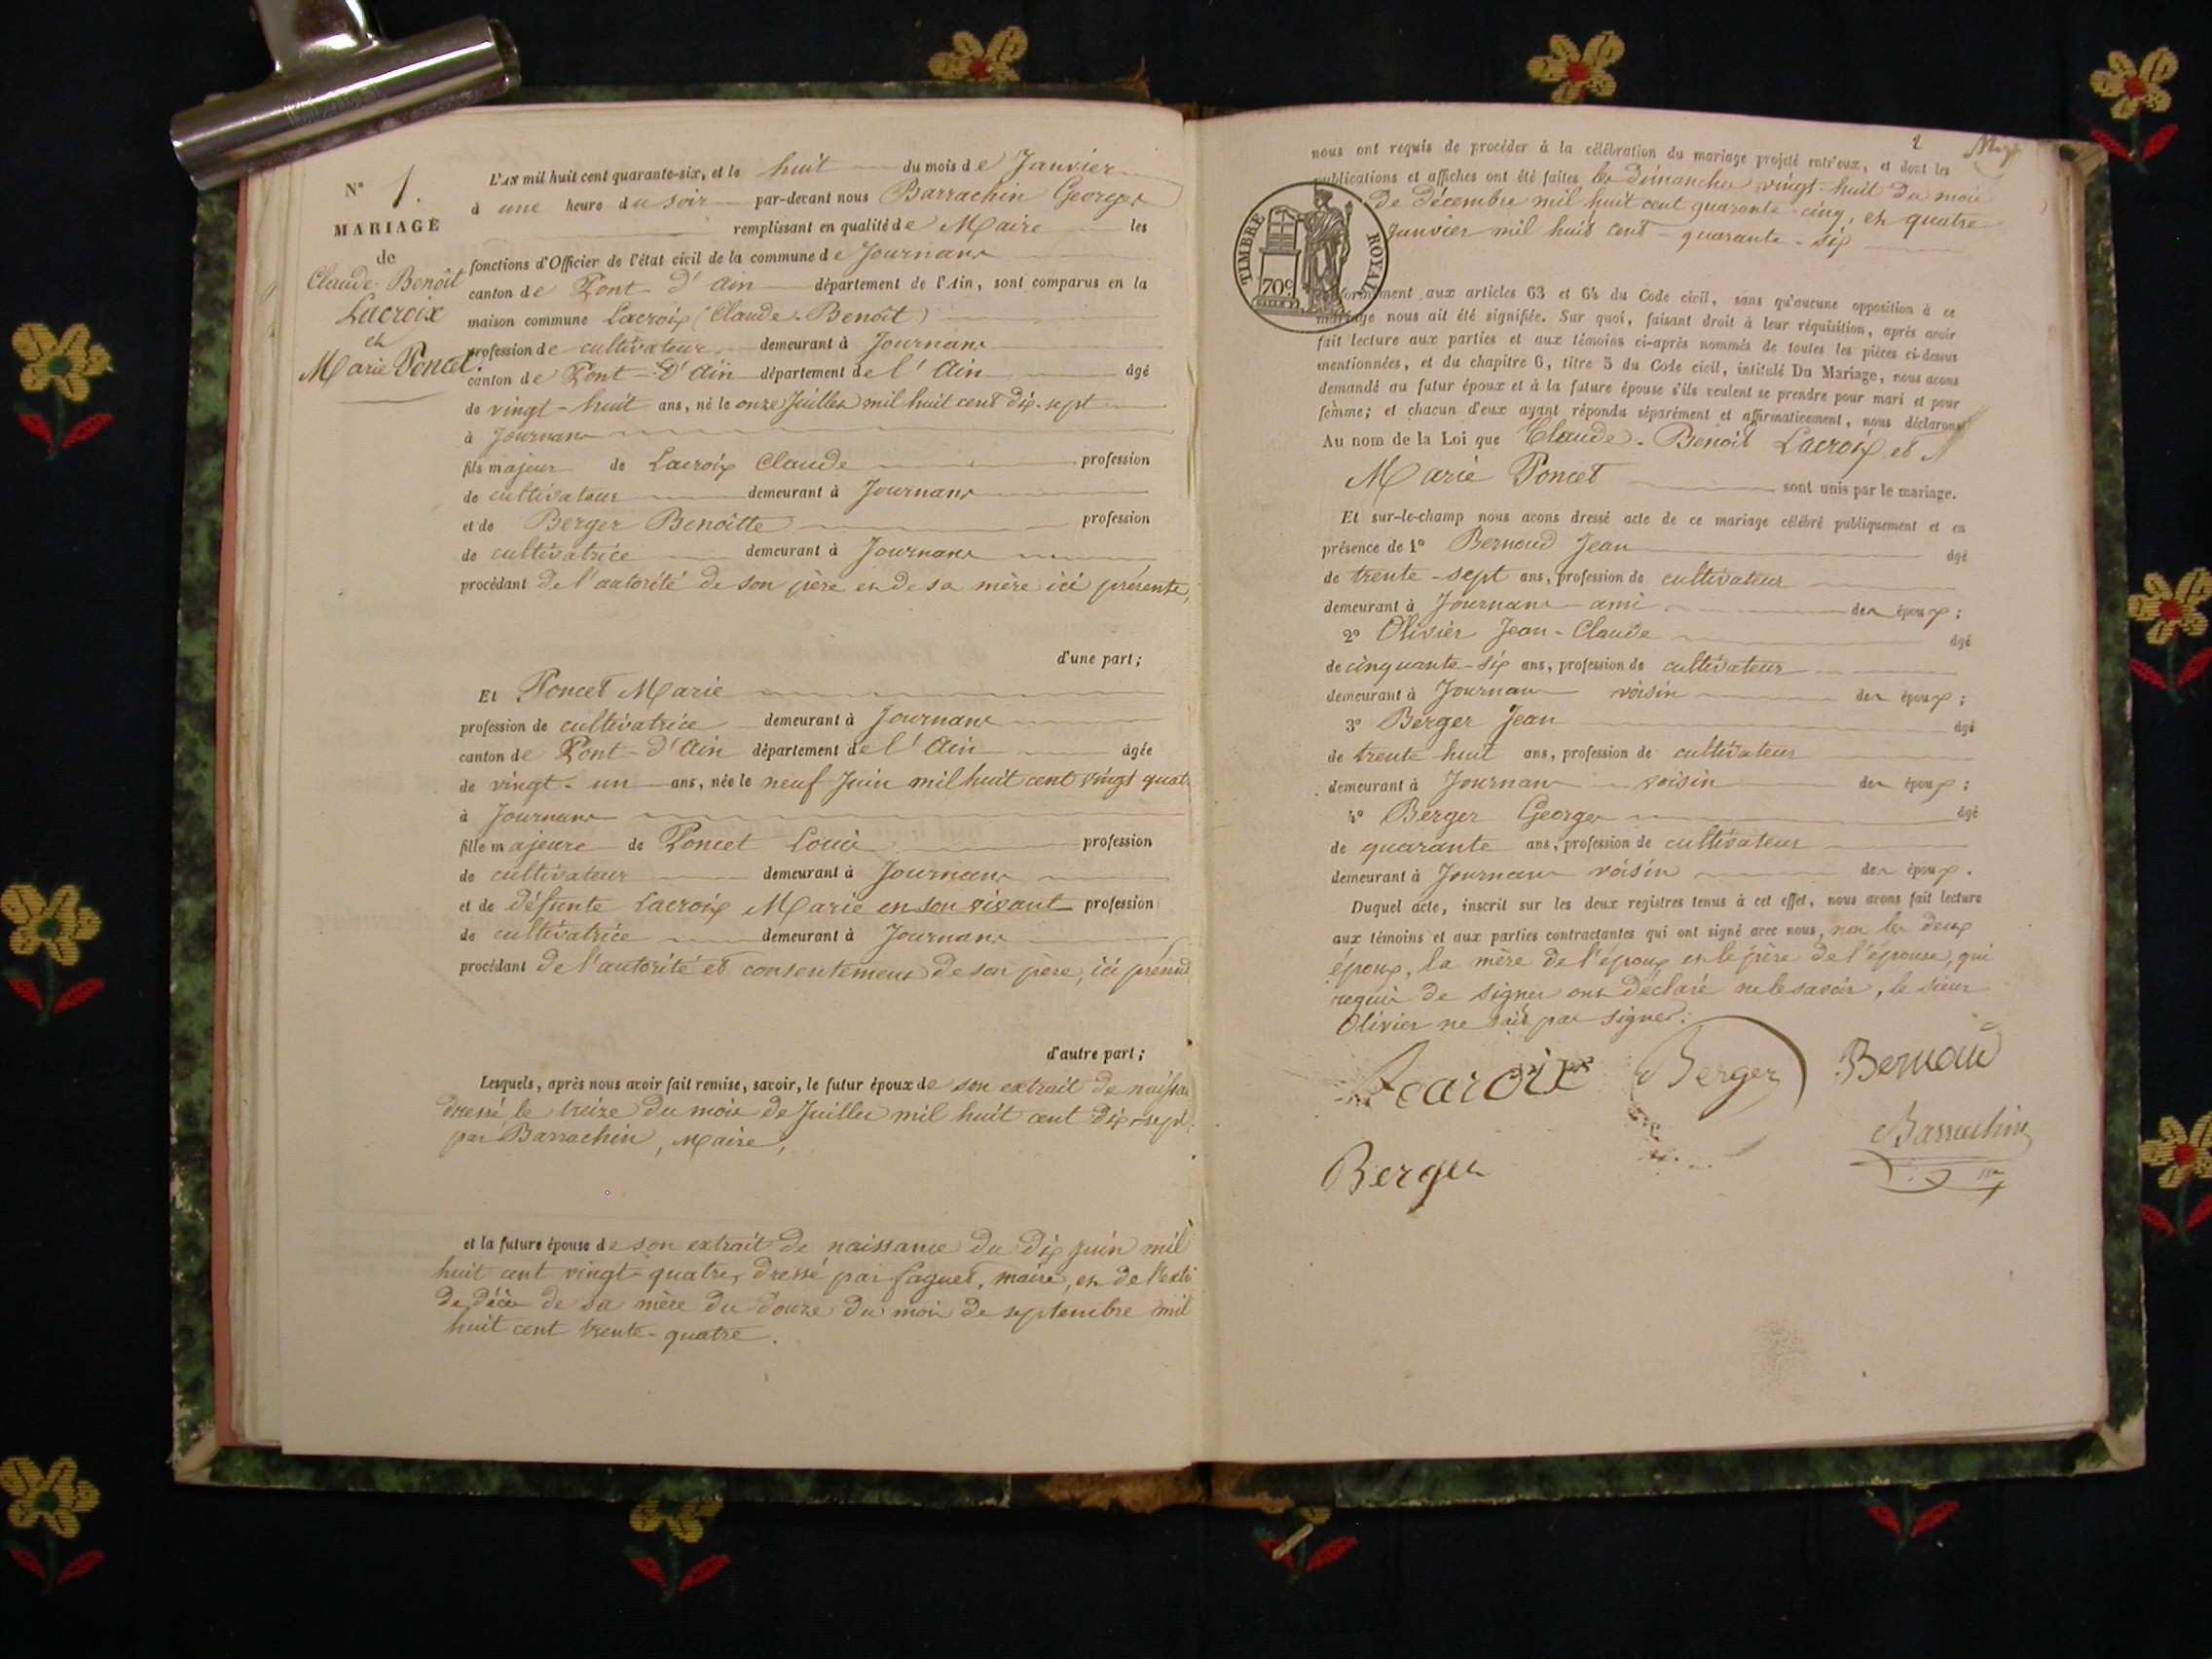 N° 1.
MARIAGE
de
Claude-Benoît
Lacroix
et
Marie Poncet.
L'AN mil huit cent quarante-six, et le huit du mois de Janvier
à une heure du soir par-devant nous Barrachin Georges
remplissant en qualité de Maire les
fonctions d'Officier de l'état civil de la commune de Journans
canton de Pont-d'Ain département de l'Ain, sont comparus en la
maison commune Lacroix (Claude-Benoît)
profession de cultivateur demeurant à Journans
canton de Pont-d'Ain département de l'Ain âgé
de vingt-huit ans, né le onze Juillet mil huit cent dix-sept
à Journans
fils majeur de Lacroix Claude profession
de cultivateur demeurant à Journans
et de Berger Benoîtte profession
de cultivatrice demeurant à Journans
procédant de l'autorité de son père et de sa mère ici présente,
d'une part;
Et Poncet Marie
profession de cultivatrice demeurant à Journans
canton de Pont-d'Ain département de l'Ain âgée
de vingt-un ans, née le neuf Juin mil huit cent vingt quat
à Journans
fille majeure de Poncet Louis profession
de cultivateur demeurant à Journans
et de défunte Lacroix Marie en son vivant profession
de cultivatrice demeurant à Journans
procédant de l'autorité et consentement de son père, ici présent
d'autre part;
Lesquels, après nous avoir fait remise, savoir, le futur époux de son extrait de naissa
dressé le treize du mois de Juillet mil huit cent dix-sept,
par Barrachin, Maire,
et la future épouse de son extrait de naissance du dix juin mil
huit cent vingt-quatre, dressé par Faguet, maire, et de l'extr
de décès de sa mère du douze du mois de septembre mil
huit cent trente-quatre.
2
nous ont requis de procéder à la célébration du mariage projeté entr'eux, et dont les
publications et affiches ont été faites les dimanches vingt-huit du mois
de décembre mil huit cent quarante-cinq, et quatre
Janvier mil huit cent-quarante-six
TIMBRE ROYAL
70c
conformément aux articles 63 et 64 du Code civil, sans qu'aucune opposition à ce
mariage nous ait été signifiée. Sur quoi, faisant droit à leur réquisition, après avoir
fait lecture aux parties et aux témoins ci-après nommés de toutes les pièces ci-dessus
mentionnées, et du chapitre 6, titre 5 du Code civil, intitulé Du Mariage, nous avons
demandé au futur époux et à la future épouse s'ils veulent se prendre pour mari et pour
femme; et chacun d'eux ayant répondu séparément et affirmativement, nous déclarons
Au nom de la Loi que Claude-Benoît Lacroix et
Marie Poncet sont unis par le mariage.
Et sur-le-champ nous avons dressé acte de ce mariage célébré publiquement et en
présence de 1° Bernoud Jean âgé
de trente-sept ans, profession de cultivateur
demeurant à Journans ami des époux;
2° Olivier Jean-Claude âgé
de cinquante-six ans, profession de cultivateur
demeurant à Journans voisin des époux;
3° Berger Jean âgé
de trente huit ans, profession de cultivateur
demeurant à Journans voisin des époux;
4° Berger Georges âgé
de quarante ans, profession de cultivateur
demeurant à Journans voisin des époux.
Duquel acte, inscrit sur les deux registres tenus à cet effet, nous avons fait lecture
aux témoins et aux parties contractantes qui ont signé avec nous, non les deux
époux, la mère de l'époux et le père de l'épouse, qui
requis de signer ont déclaré ne le savoir, le sieur
Olivier ne sait pas signer.
Lacroix Berger Bernoud
Barrachin
Berger